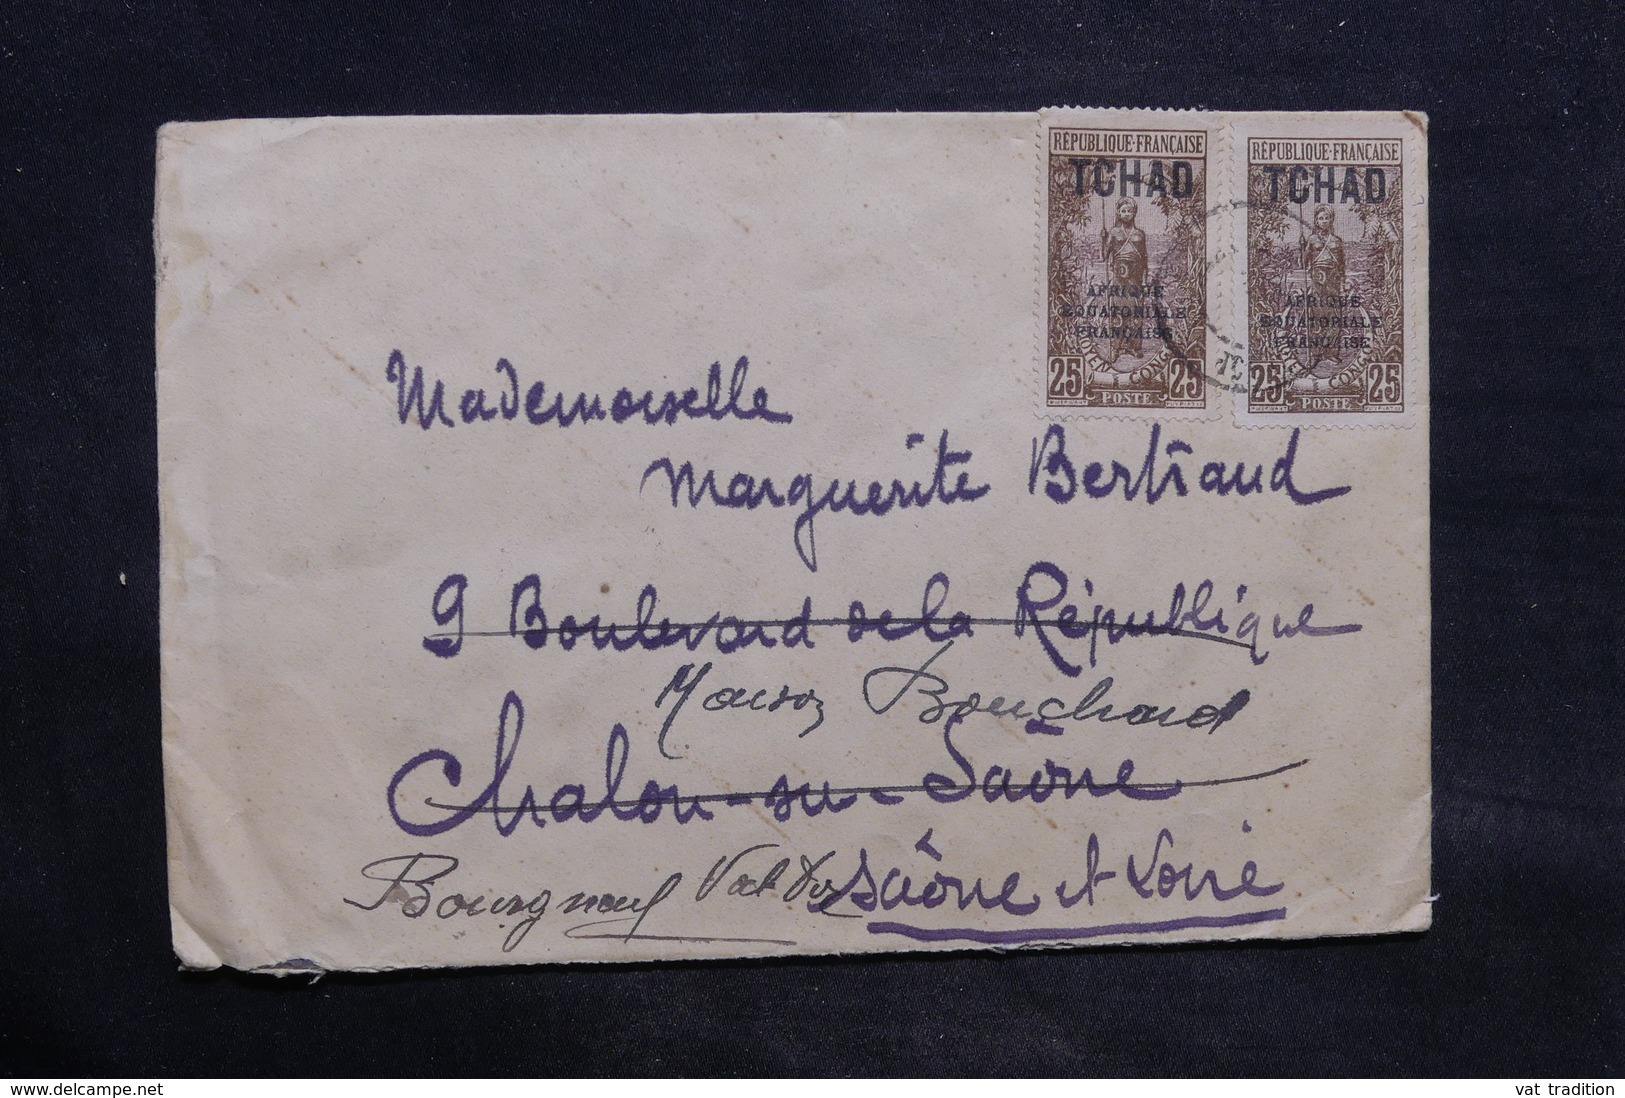 RÉPUBLIQUE·FRANÇAISE
TCHAD
AFRIQUE
EQUATORIALE
FRANÇAISE
MOYEN CONGO
25 25
POSTE
RÉPUBLIQUE·FRANÇAISE
TCHAD
AFRIQUE
EQUATORIALE
FRANÇAISE
MOYEN CONGO
25 25
POSTE
Mademoiselle
Marguerite Bertrand
9 Boulevard de la République
Maison Bouchard
Chalon-su-Saône
Bourgneuf Val d'or
Saône et Loire
www.delcampe.net
vat tradition